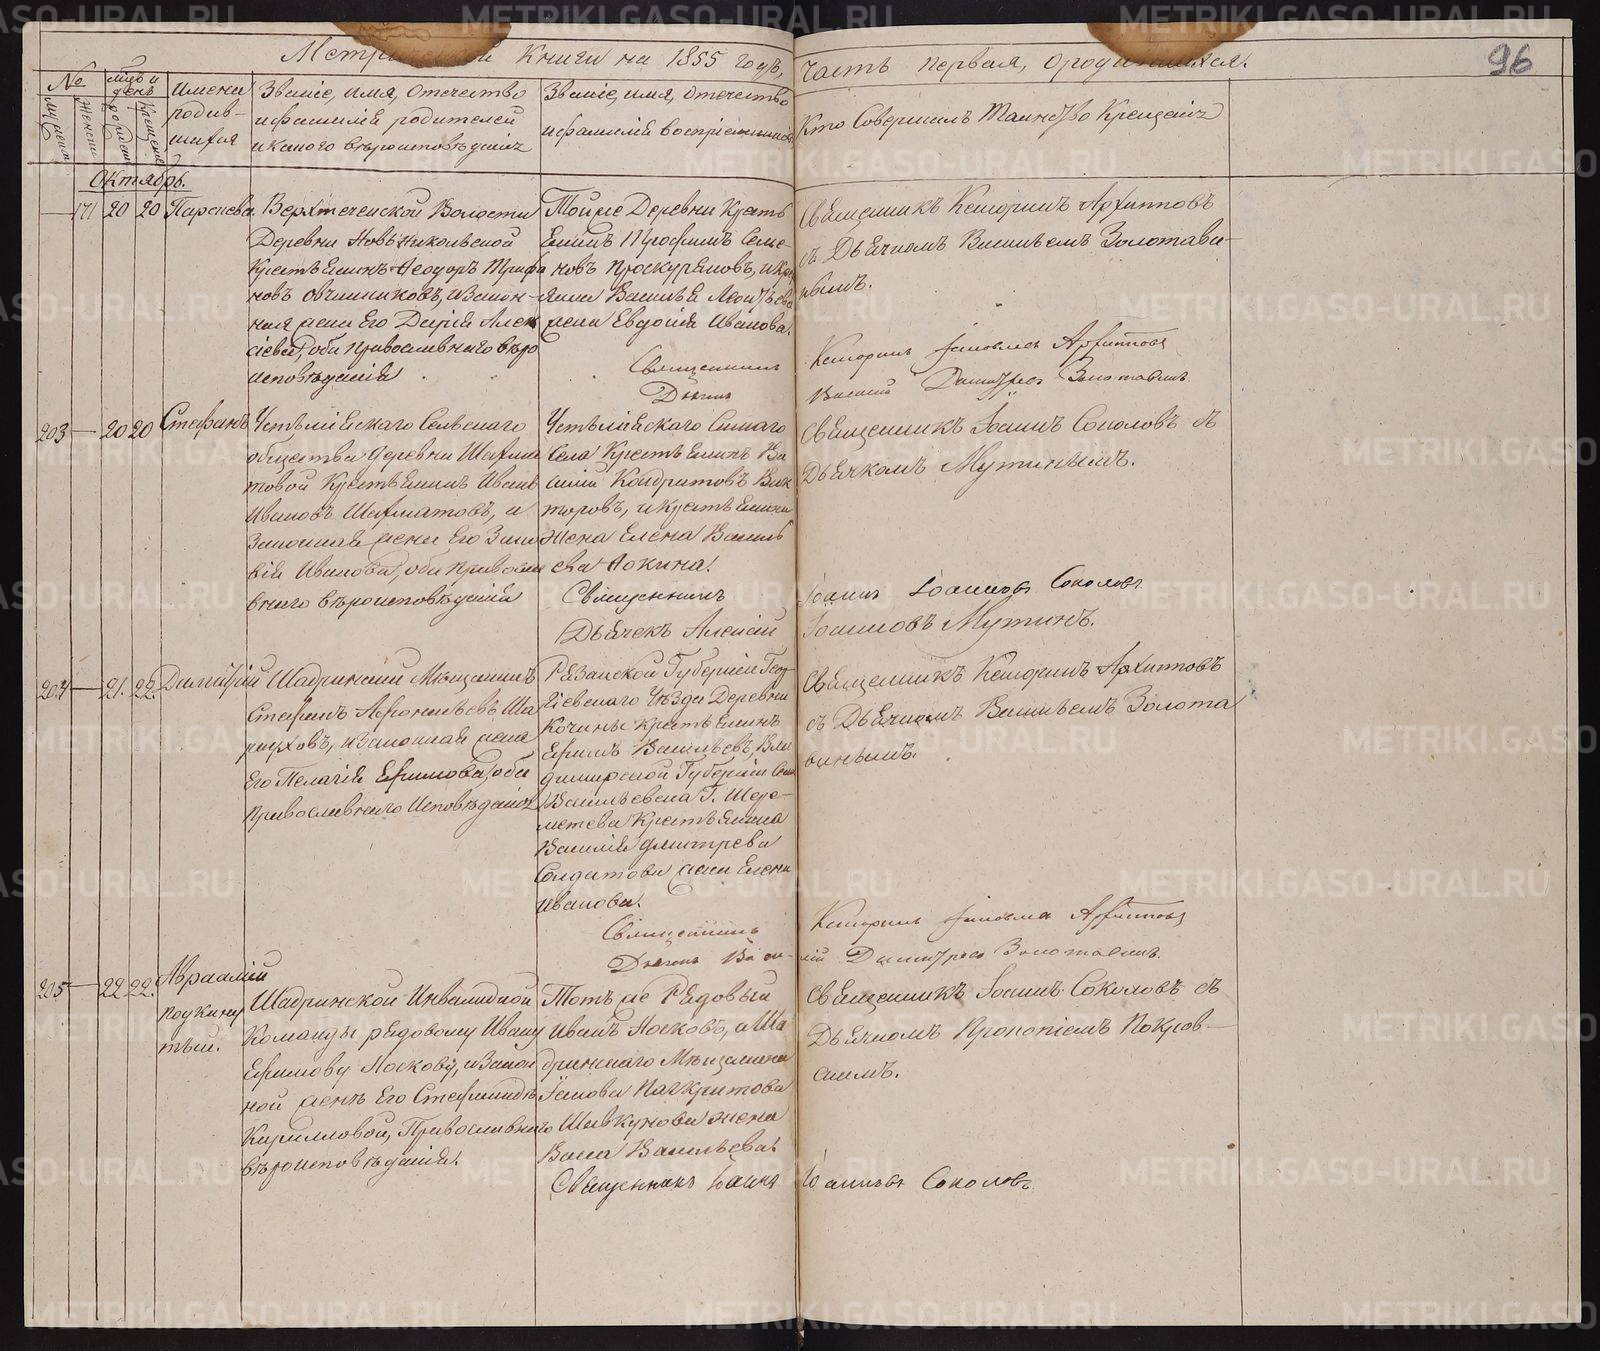 Книги на 1855 годъ,
часть первая, о родившихся.
96
№
мць и день
Мужеск
Женски
Крещения
Имена родив-
шихся
Званіе, имя, отечество
и фамилія родителей
и какого вѣроисповѣданія
Званіе, имя, отечество
и фамилія воспріемниковъ
Кто Совершалъ Таинство Крещенія
Октябрь.
171 20 20
Верхтеченской Волости
Деревни Новъникольской
Крестьянинъ Ѳеодоръ Трифо
новъ Овчинниковъ, и закон-
ная жена Его Дарія Алек
сіева, оба православнаго вѣро
исповѣданія
Той же Деревни Кресть
янинъ Трофимъ Семе-
новъ Проскуряковъ, и Кре
жена Евдокія Иванова.
Священникъ
Дьячекъ
Священникъ Архипповъ
съ Дьячкомъ Васильемъ Золотави-
нымъ.
Архипповъ
Василій Димитріевъ Золотавинъ
203 — 20 20 Стефанъ
Устьміяскаго Сельскаго
общества деревни Шахма
товой Крестьянинъ Иванъ
Ивановъ Шахматовъ, и
Законная жена Его Зино
вія Иванова, оба Правосла
внаго вѣроисповѣданія
Устьміяскаго Самаго
Села Крестьянинъ Ва
силій Кондратовъ Вик
торовъ, и Крестьянина
жена Елена Василь
ева
Священникъ
Дьячекъ Алексій
Священникъ Іоаннъ Соколовъ съ
Дьячкомъ Мутинымъ.
Іоаннъ Іоанновъ Соколовъ
Іоанновъ Мутинъ.
204 — 21. 22. Димитрій
Шадринскій Мѣщанинъ
Стефанъ Афонасьевъ Ша
руховъ, и законная жена
Его Пелагія Ефимова, оба
Православнаго Исповѣданія
Рязанской Губерніи
Уѣзда Деревни
Крестьянинъ
Ефимъ Васильевъ, Вла
димирской Губерніи Села
Васильевска Г. Шере-
метева Крестьянина
Василія Дмитрева
Солдатова жена Елена
Иванова.
Священникъ
Дьячекъ Васи-
Священникъ Архипповъ
съ Дьячкомъ Васильемъ Золота
винымъ.
Архипповъ
лій Димитріевъ Золотавинъ.
205 — 22 22. Авраамій
подкину
тый.
Шадринской Инвалидной
Команды рядовому Ивану
Ефимову Носкову, и закон
ной женѣ Его Стефанидѣ
Кирилловой, Православнаго
вѣроисповѣданія.
Тотъ же Рядовый
Иванъ Носковъ, и Ша
дринскаго Мѣщанина
Іакова Панкратова
Шавкунова жена
Васса Васильева.
Священникъ Іоаннъ
Священникъ Іоаннъ Соколовъ съ
Дьячкомъ Прокопіемъ Покров-
скимъ.
Іоанновъ Соколовъ.
METRIKI.GASO-URAL.RU